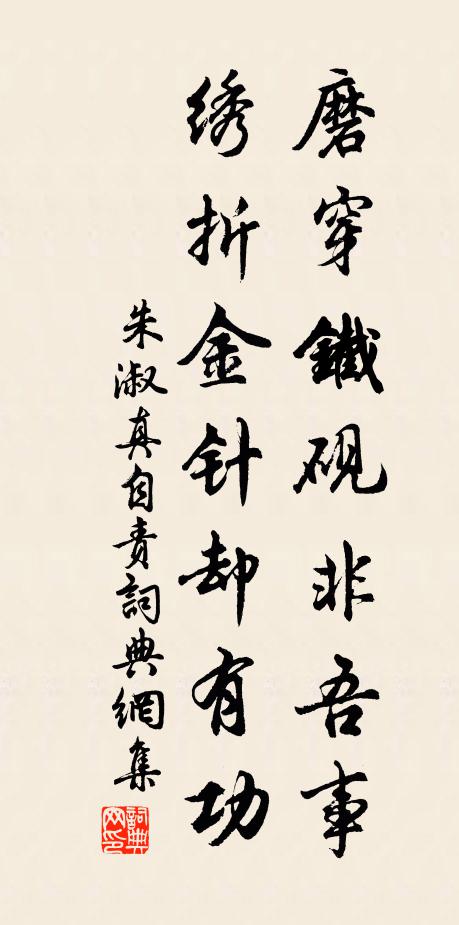 磨穿鐵硯非吾事
绣折金针却有功
朱淑真自责詞典網集
詞典網印